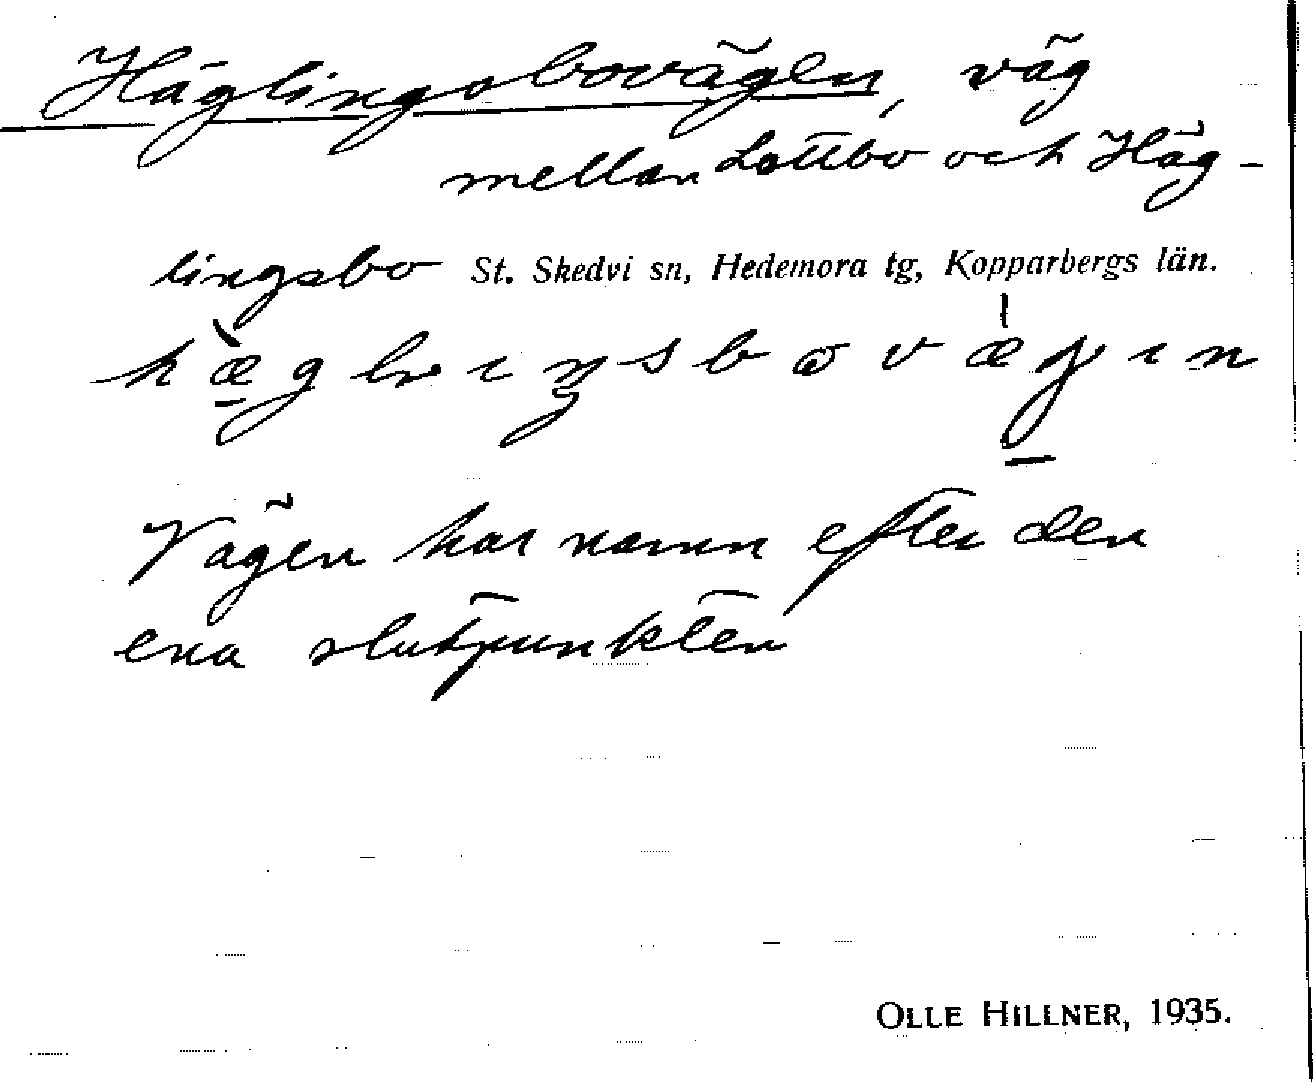 Häglingsbovägen, väg
mellan Lottbo och Häg-
lingsbo St. Skedvi sn, Hedemora tg, Kopparbergs län.
Vägen har namn efter den
ena slutpunkten
OLLE HILLNER, 1935.